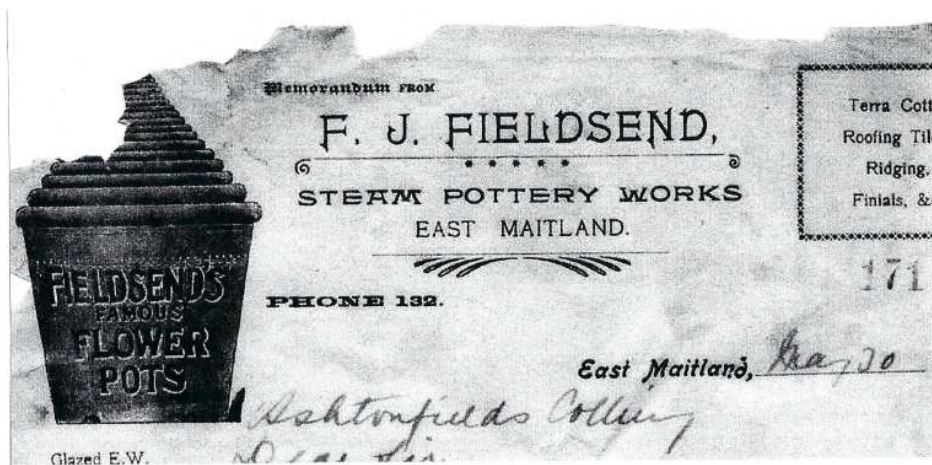 Memorandum FROM
F. J. FIELDSEND,
STEAM POTTERY WORKS
EAST MAITLAND.
PHONE 132.
Terra Cott
Roofing Til
Ridging,
Finials, &
171
FIELDSEND'S
FAMOUS
FLOWER
POTS
East Maitland, May 30
Ashtonfields Colliery
Dear Sir
Glazed E.W.